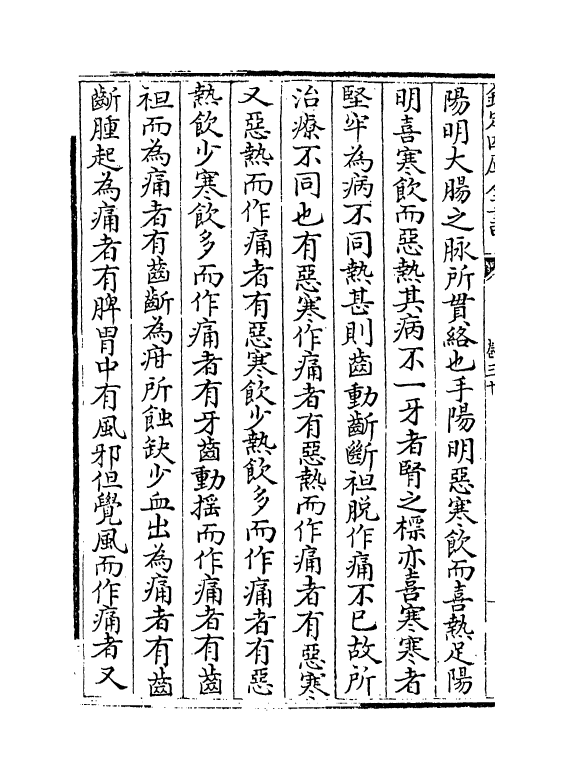 陽明大腸之脉所貫絡也手陽明惡寒飲而喜熱足陽
明喜寒飲而惡熱其病不一牙者腎之標亦喜寒寒者
堅牢為病不同熱甚則齒動齗斷袒脱作痛不已故所
治療不同也有惡寒作痛者有惡熱而作痛者有惡寒
又惡熱而作痛者有惡寒飲少熱飲多而作痛者有惡
熱飲少寒飲多而作痛者有牙齒動揺而作痛者有齒
袒而為痛者有齒齗為疳所蝕缺少血出為痛者有齒
齗腫起為痛者有脾胃中有風邪但覺風而作痛者又